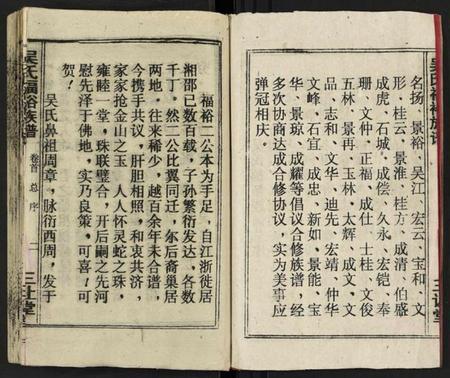 名扬、景裕、吴江、宏云、宝和、文
形、桂云、景淮、桂方、成清、伯盛
成虎、石城、成偿、久永、宏铠、奉
珊、文仲、正福、成仕、士桂、文俊
五林、景再、玉林、太辉、成文、文
品、志和、文华、迪先、宏靖、仲华
文峰、石宜、成忠、新如、景能、宝
华、景琼、成耀等倡议合修族谱，经
多次协商达成合修协议，实为美事应
弹冠相庆。
吴氏福裕族谱
卷首 总序 二
三让堂
福裕二公本为手足，自江浙徙居
湘邵已数百载，子孙繁衍发达，各数
千丁。然二公比翼同迁，尔后裔集居
两地，往来稀少，越百余年未合谱，
今携手共议，肝胆相照，和衷共济，
家家抢金山之玉，人人怀灵蛇之珠，
雍睦一堂，珠联璧合，开后嗣之先河
慰先泽于佛地，实乃良策，可喜！可
贺！
吴氏鼻祖周章，脉衍西周，发于